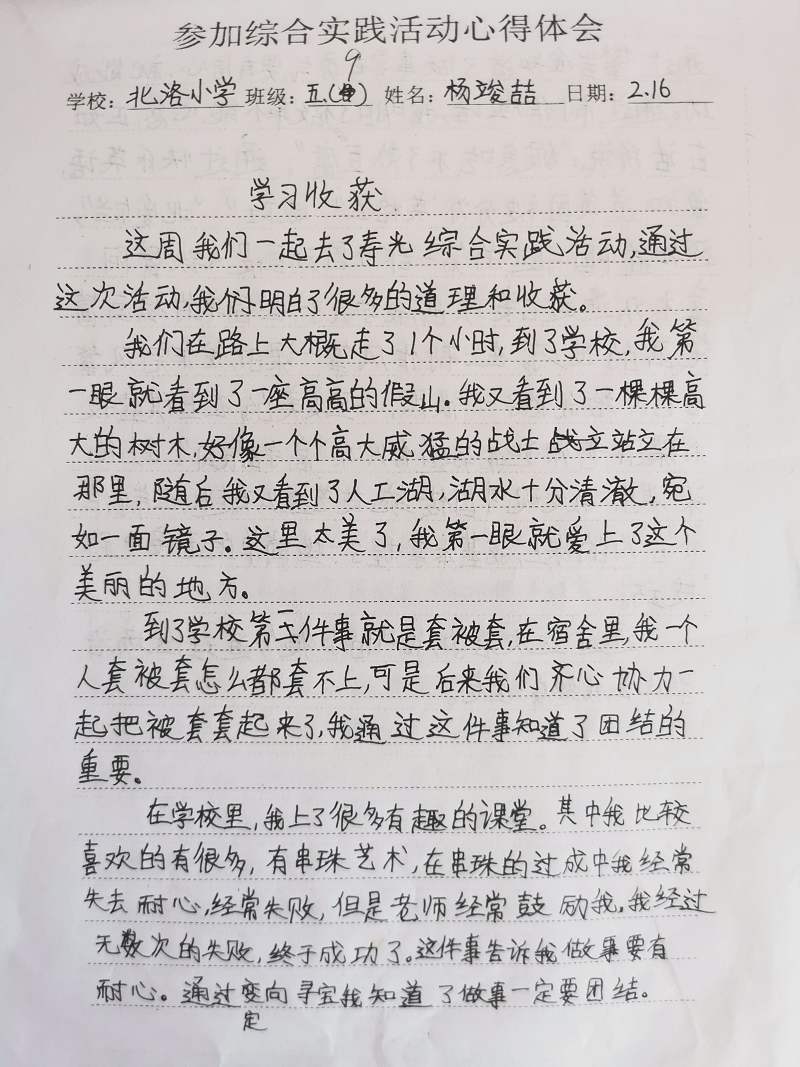 参加综合实践活动心得体会
学校：北洛小学 班级：五.(9) 姓名：杨竣喆 日期：2.16
学习收获
这周我们一起去了寿光综合实践活动,通过
这次活动,我们明白了很多的道理和收获。
我们在路上大概走了1个小时,到了学校,我第
一眼就看到了一座高高的假山。我又看到了一棵棵高
大的树木,好像一个个高大威猛的战士站立在
那里,随后我又看到了人工湖,湖水十分清澈,宛
如一面镜子。这里太美了,我第一眼就爱上了这个
美丽的地方。
到了学校第一件事就是套被套,在宿舍里,我一个
人套被套怎么都套不上,可是后来我们齐心协力一
起把被套套起来了,我通过这件事知道了团结的
重要。
在学校里,我上了很多有趣的课堂。其中我比较
喜欢的有很多,有串珠艺术,在串珠的过成中我经常
失去耐心,经常失败,但是老师经常鼓励我,我经过
无数次的失败,终于成功了。这件事告诉我做事要有
耐心。通过定向寻宝我知道了做事一定要团结。